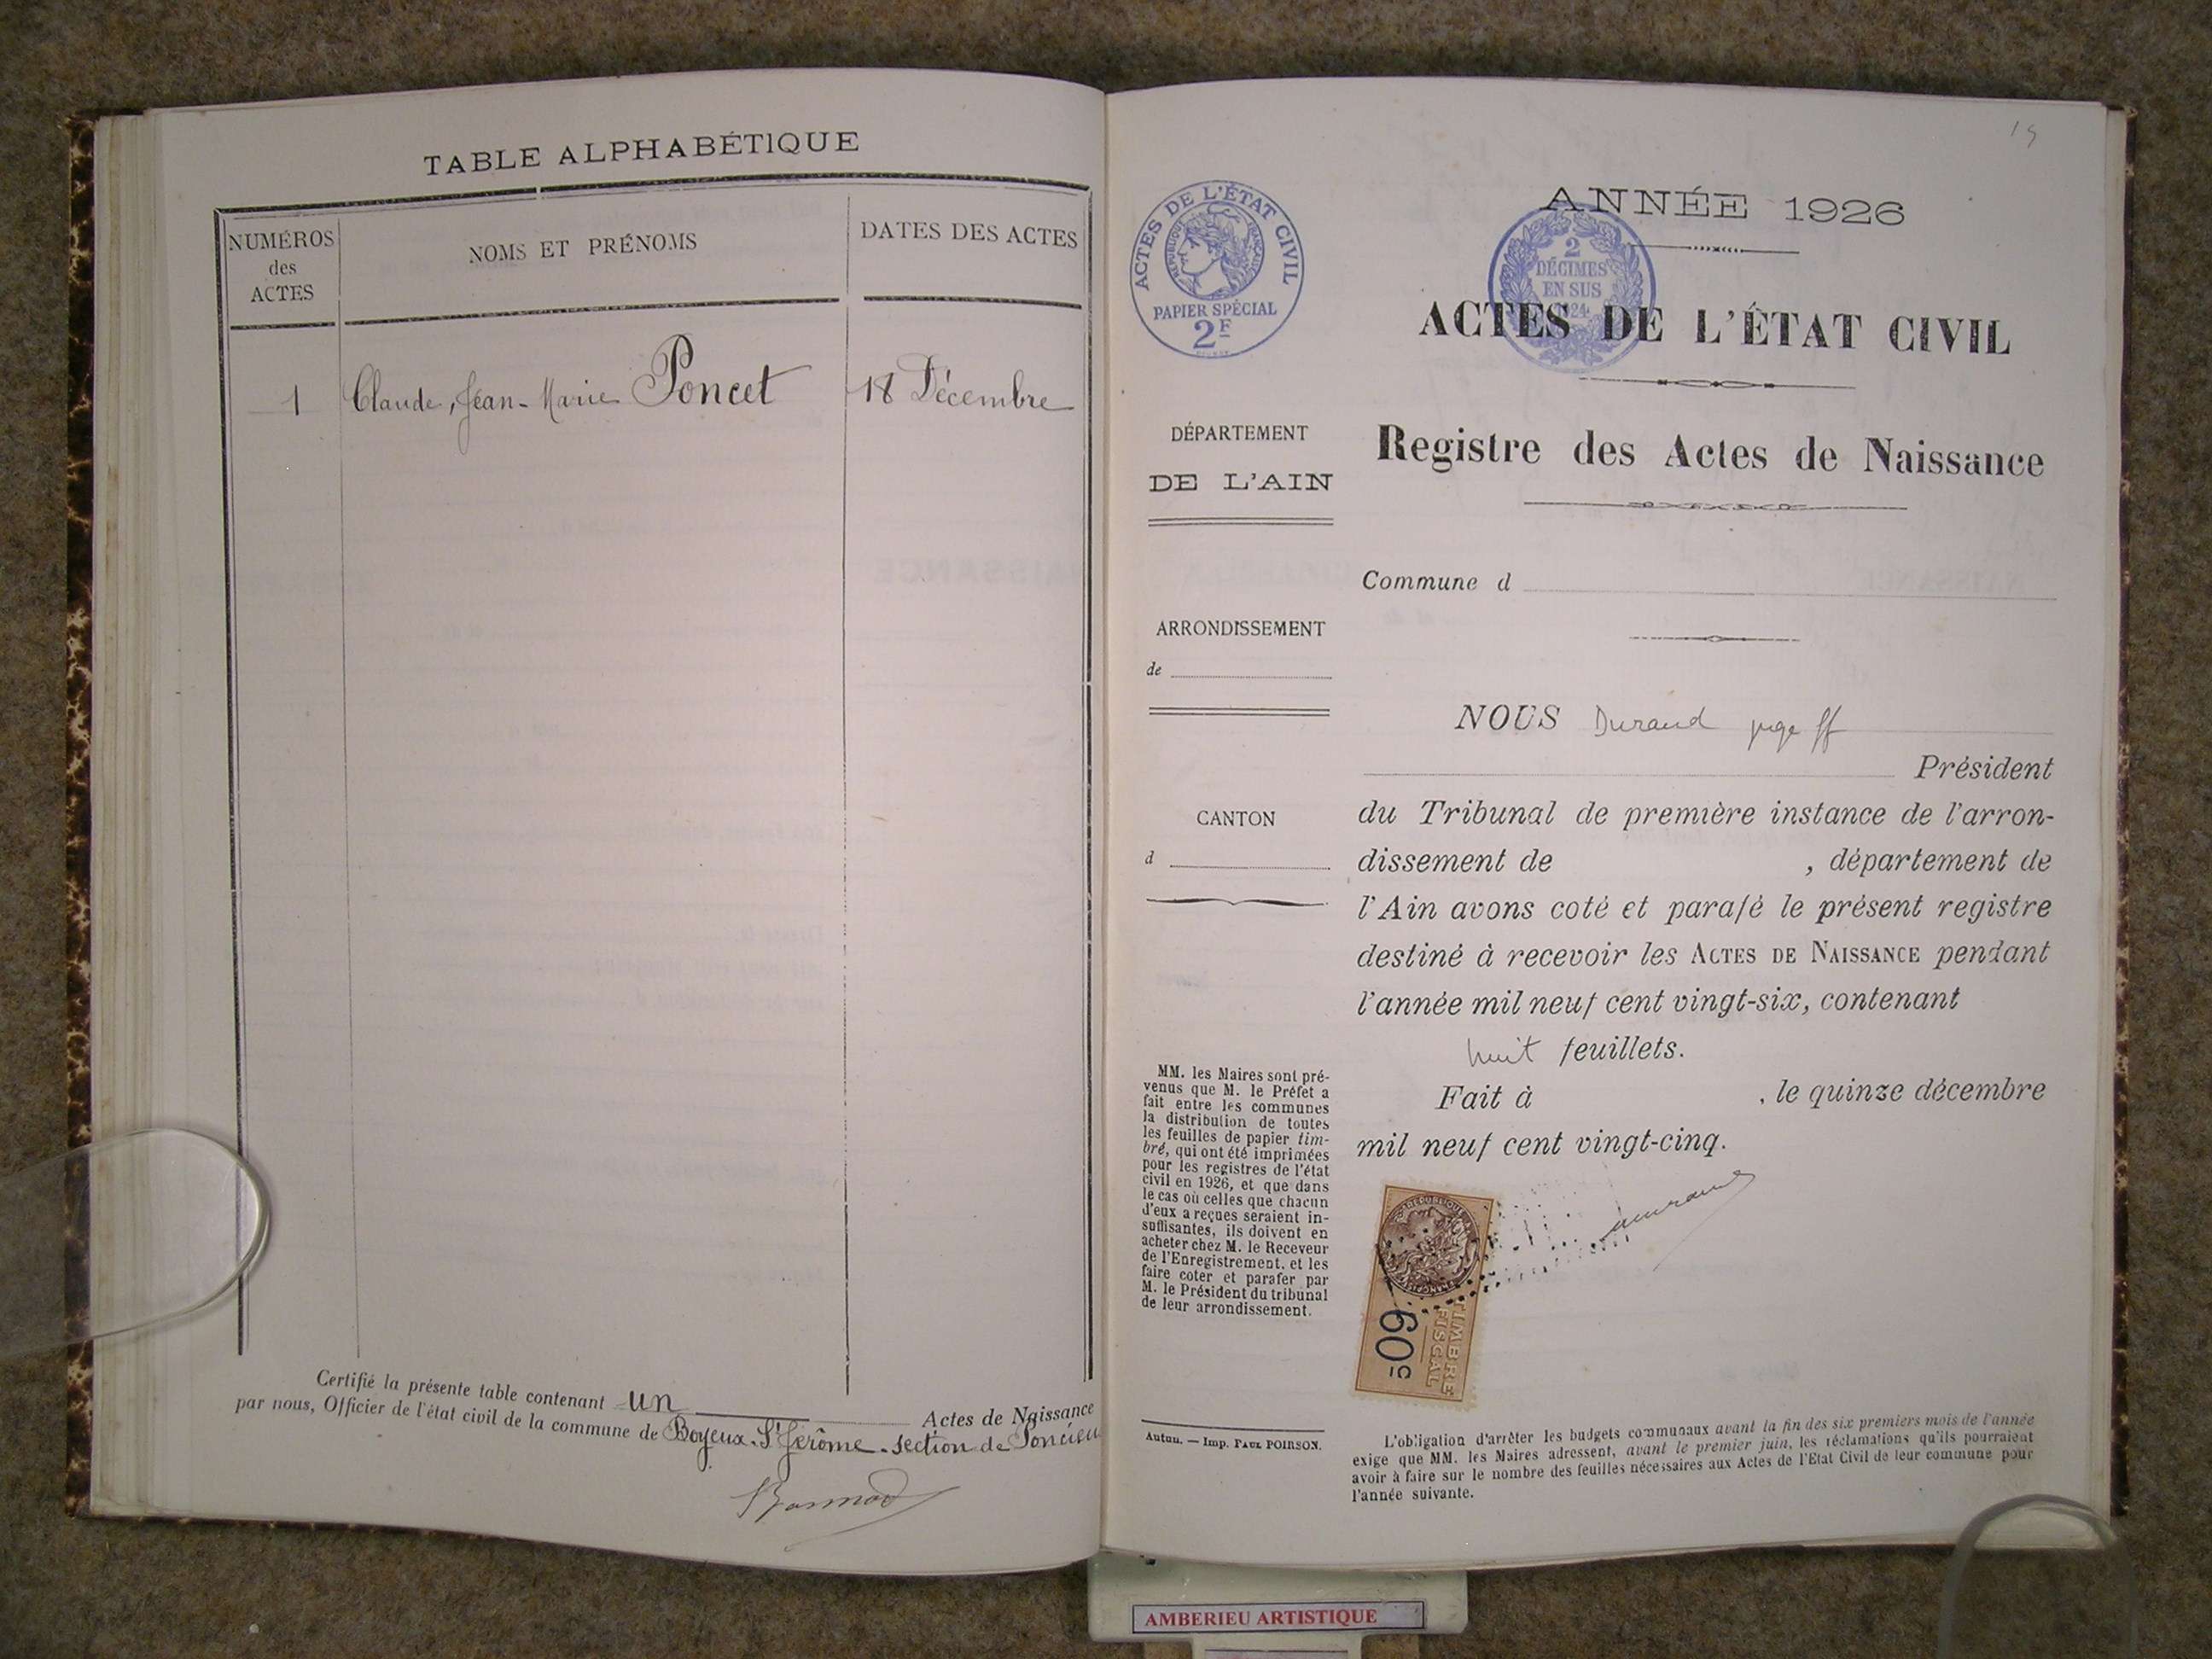 TABLE ALPHABÉTIQUE
NUMÉROS
des
ACTES
NOMS ET PRÉNOMS
DATES DES ACTES
1 Claude, Jean-Marie Poncet 18 Décembre
Certifié la présente table contenant un Actes de Naissance
par nous, Officier de l'état civil de la commune de Boyeux-St Jérôme - section de Poncieu
19
ACTES DE L'ÉTAT CIVIL
RÉPUBLIQUE FRANÇAISE
PAPIER SPÉCIAL
2F
ANNÉE 1926
2
DÉCIMES
EN SUS
1924
ACTES DE L'ÉTAT CIVIL
Registre des Actes de Naissance
DÉPARTEMENT
DE L'AIN
ARRONDISSEMENT
de
CANTON
d
MM. les Maires sont pré-
venus que M. le Préfet a
fait entre les communes
la distribution de toutes
les feuilles de papier tim-
bré, qui ont été imprimées
pour les registres de l'état
civil en 1926, et que dans
le cas où celles que chacun
d'eux a reçues seraient in-
suffisantes, ils doivent en
acheter chez M. le Receveur
de l'Enregistrement. et les
faire coter et parafer par
M. le Président du tribunal
de leur arrondissement.
Autun. — Imp. PAUL POIRSON.
Commune d
NOUS Durand juge ff
Président
du Tribunal de première instance de l'arron-
dissement de , département de
l'Ain avons coté et parafé le présent registre
destiné à recevoir les ACTES DE NAISSANCE pendant
l'année mil neuf cent vingt-six, contenant
huit feuillets.
Fait à , le quinze décembre
mil neuf cent vingt-cinq.
Durand
60c
TIMBRE
FISCAL
L'obligation d'arrêter les budgets communaux avant la fin des six premiers mois de l'année
exige que MM. les Maires adressent, avant le premier juin, les réclamations qu'ils pourraient
avoir à faire sur le nombre des feuilles nécessaires aux Actes de l'Etat Civil de leur commune pour
l'année suivante.
AMBERIEU ARTISTIQUE